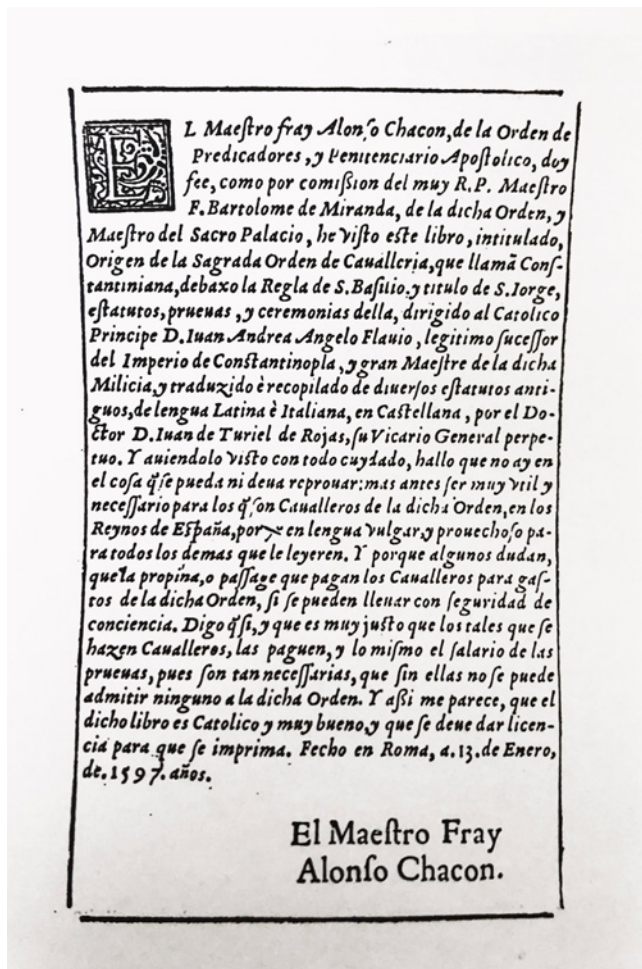 EL Maeſtro fray Alonſo Chacon, de la Orden de
Predicadores, y Penitenciario Apoſtolico, doy
fee, como por comiſsion del muy R.P. Maeſtro
F. Bartolome de Miranda, de la dicha Orden, y
Maeſtro del Sacro Palacio, he viſto eſte libro, intitulado,
Origen de la Sagrada Orden de Caualleria, que llamã Conſ-
tantiniana, debaxo la Regla de S. Baſilio. y titulo de S. Iorge,
eſtatutos, prueuas, y ceremonias della, dirigido al Catolico
Principe D. Iuan Andrea Angelo Flauio, legitimo ſuceſſor
del Imperio de Conſtantinopla, y gran Maeſtre de la dicha
Milicia, y traduzido è recopilado de diuerſos eſtatutos anti-
guos, de lengua Latina è Italiana, en Caſtellana, por el Do-
ctor D. Iuan de Turiel de Rojas, ſu Vicario General perpe-
tuo. Y auiendolo viſto con todo cuydado, hallo que no ay en
el coſa q̃ ſe pueda ni deua reprouar: mas antes ſer muy vtil y
neceſſario para los q̃ ſon Caualleros de la dicha Orden, en los
Reynos de Eſpaña, por en lengua vulgar, y prouechoſo pa-
ra todos los demas que le leyeren. Y porque algunos dudan,
que la propina, o paſſage que pagan los Caualleros para gaſ-
tos de la dicha Orden, ſi ſe pueden lleuar con ſeguridad de
conciencia. Digo q̃ ſi, y que es muy juſto que los tales que ſe
hazen Caualleros, las paguen, y lo miſmo el ſalario de las
prueuas, pues ſon tan neceſſarias, que ſin ellas no ſe puede
admitir ninguno a la dicha Orden. Y aſsi me parece, que el
dicho libro es Catolico y muy bueno, y que ſe deue dar licen-
cia para que ſe imprima. Fecho en Roma, a. 13. de Enero,
de. 1597. años.
El Maeſtro Fray
Alonſo Chacon.